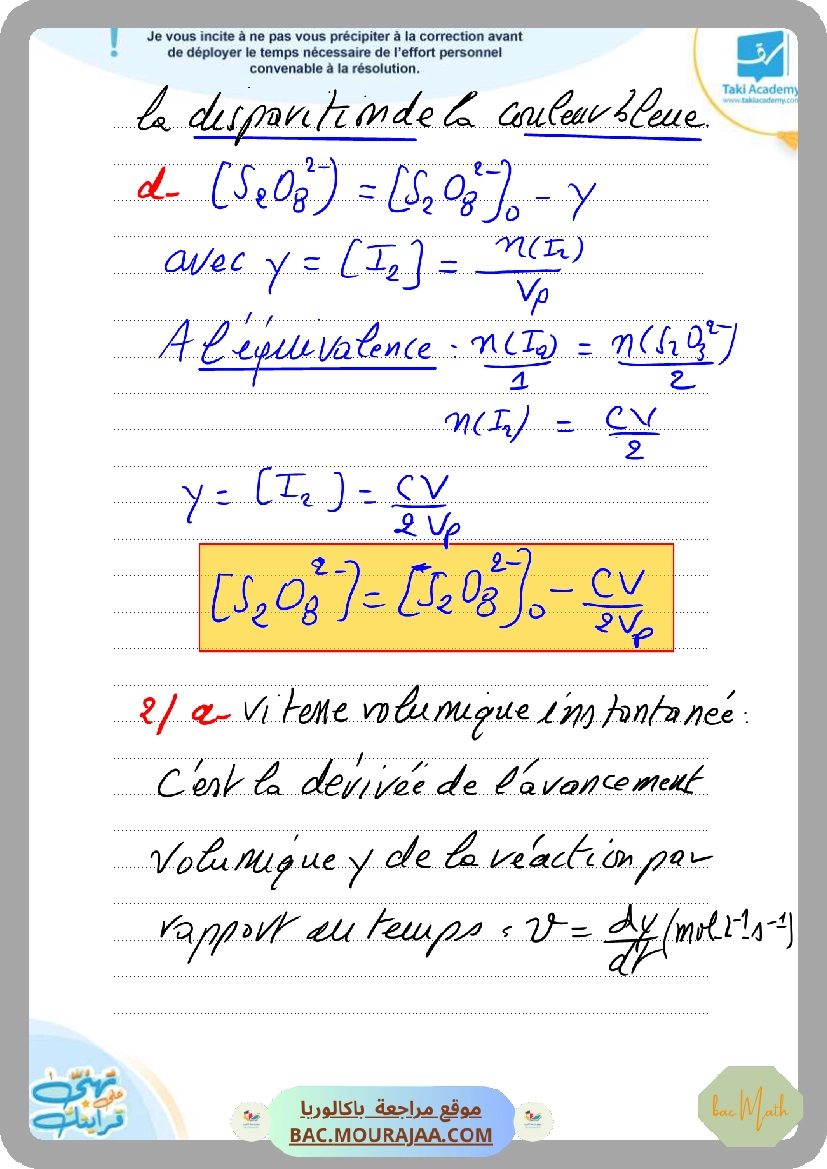 !
Je vous incite à ne pas vous précipiter à la correction avant
de déployer le temps nécessaire de l'effort personnel
convenable à la résolution.
Taki Academy
www.takiacademy.com
la disparition de la couleur bleue.
d- [S₂O₈²⁻] = [S₂O₈²⁻]₀ - y
avec y = [I₂] = n(I₂)/Vp
A l'équivalence : n(I₂)/1 = n(S₂O₃²⁻)/2
n(I₂) = CV/2
y = [I₂] = CV/2Vp
[S₂O₈²⁻] = [S₂O₈²⁻]₀ - CV/2Vp
2/ a- Vitesse volumique instantanée :
C'est la dérivée de l'avancement
Volumique y de la réaction par
rapport au temps : v = dy/dt (mol.L⁻¹.s⁻¹)
تهنّى على قرايتك
موقع مراجعة باكالوريا
BAC.MOURAJAA.COM
bac Math